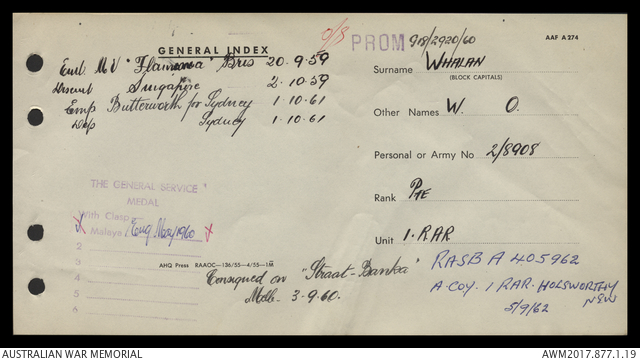 AAF A 274
O/S
PROM 918/2920/60
GENERAL INDEX
Emb MV "Flaminia" Bris 20-9-59
Disemb Singapore 2-10-59
Emp Butterworth for Sydney 1-10-61
Dep Sydney 1-10-61
Surname WHALAN
(BLOCK CAPITALS)
Other Names W. O.
Personal or Army No 2/8908
Rank Pte
Unit 1. RAR
THE GENERAL SERVICE
MEDAL
With Clasp
1 Malaya Eng. Nov/1960
2
3
4
5
6
AHQ Press RAAOC—136/55—4/55—1M
Consigned on "Straat-Banka"
Melb- 3-9-60.
RASB A 405962
A. COY. 1 RAR. HOLSWORTHY
NSW
5/9/62
AUSTRALIAN WAR MEMORIAL
AWM2017.877.1.19